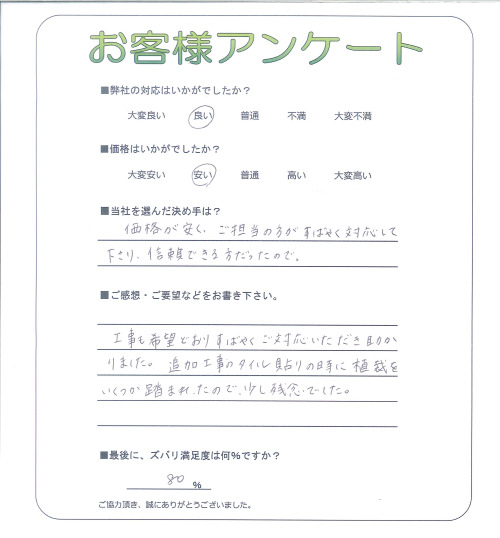 お客様アンケート
■弊社の対応はいかがでしたか？
大変良い 良い 普通 不満 大変不満
■価格はいかがでしたか？
大変安い 安い 普通 高い 大変高い
■当社を選んだ決め手は？
価格が安く、ご担当の方がすばやく対応して
下さり、信頼できる方だったので。
■ご感想・ご要望などをお書き下さい。
工事も希望どおりすばやくご対応いただき助か
りました。追加工事のタイル貼りの時に植栽を
いくつか踏まれたので、少し残念でした。
■最後に、ズバリ満足度は何%ですか？
80 %
ご協力頂き、誠にありがとうございました。